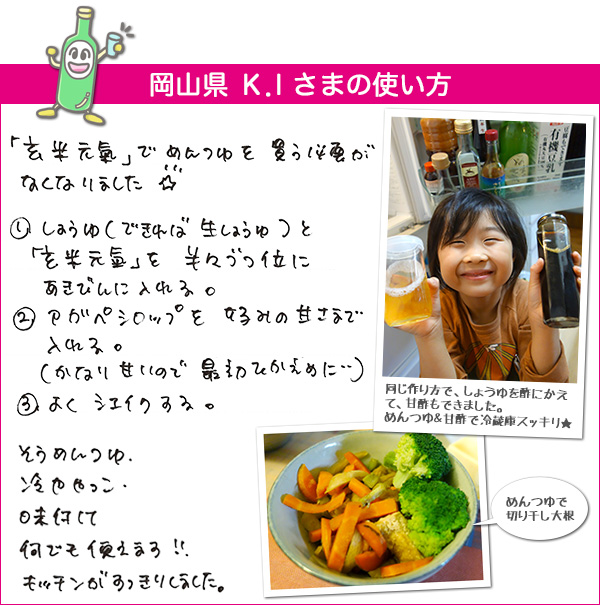 岡山県 K.Iさまの使い方
「玄米元氣」でめんつゆを買う必要が
なくなりました☆
① しょうゆ(できれば生しょうゆ)と
「玄米元氣」を半々づつ位に
あきびんに入れる。
② アガベシロップを好みの甘さまで
入れる。
(かなり甘いので最初ひかえめに…)
③ よくシェイクする。
そうめんつゆ.
冷ややっこ.
味付けて
何でも使えます!!
キッチンがすっきりしました。
有機豆乳
同じ作り方で、しょうゆを酢にかえ
て、甘酢もできました。
めんつゆ&甘酢で冷蔵庫スッキリ★
めんつゆで
切り干し大根